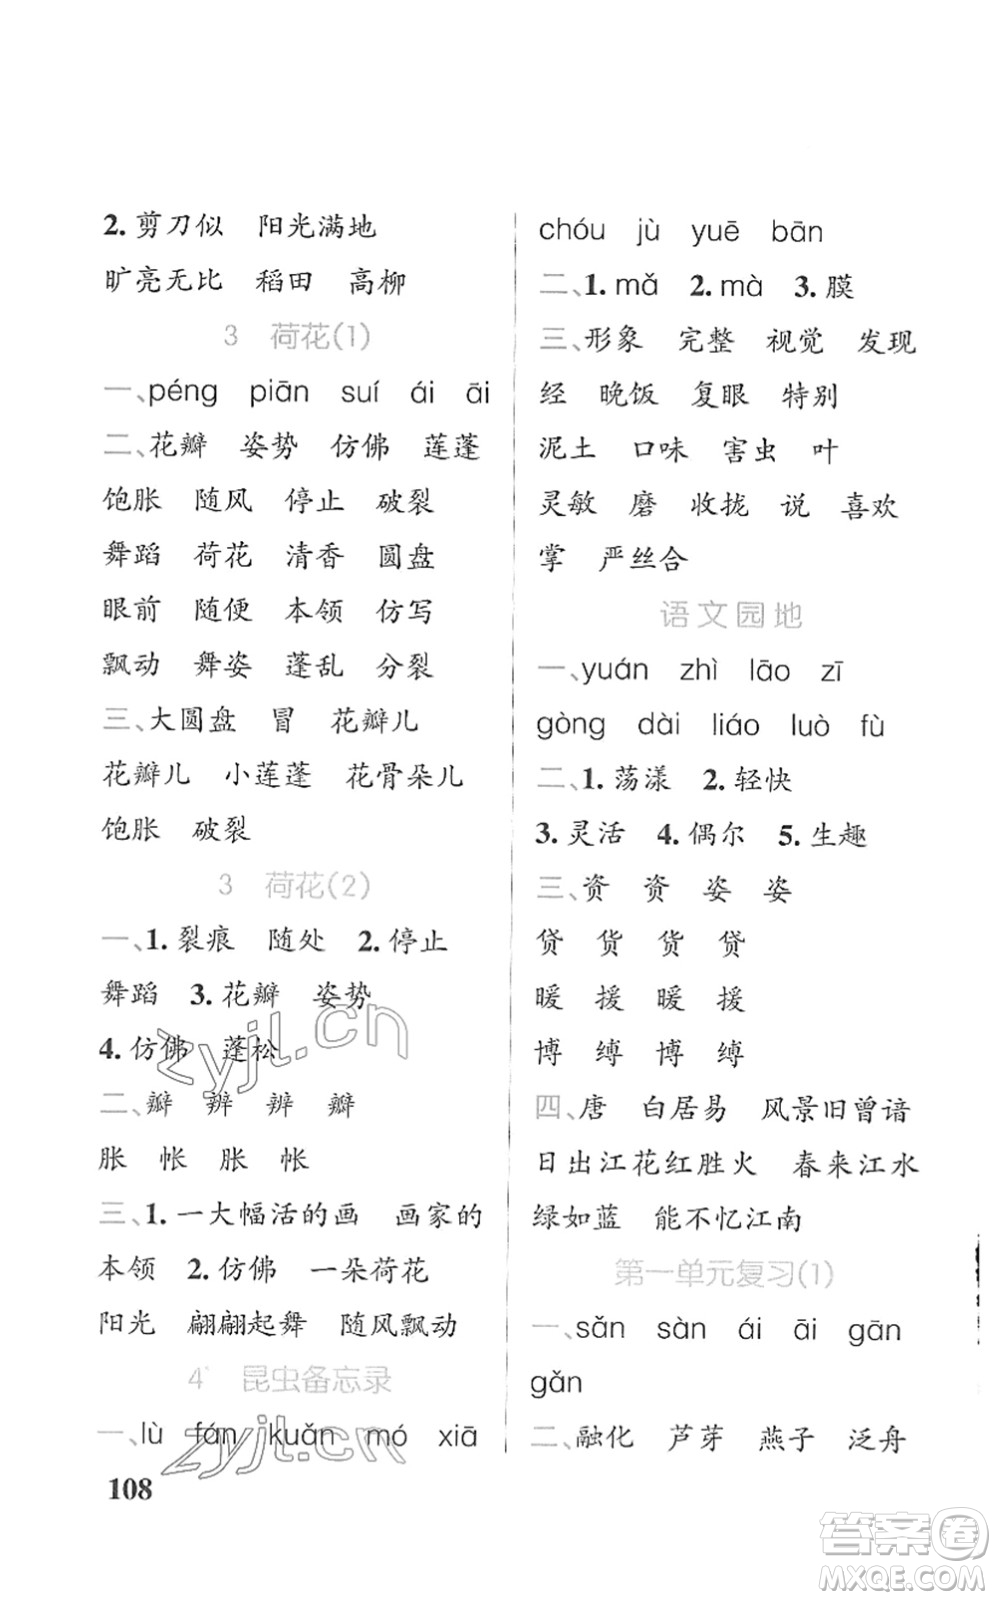 2. 剪刀似 阳光满地
旷亮无比 稻田 高柳
3 荷花(1)
一、péng piān suí ái āi
二、花瓣 姿势 仿佛 莲蓬
饱胀 随风 停止 破裂
舞蹈 荷花 清香 圆盘
眼前 随便 本领 仿写
飘动 舞姿 蓬乱 分裂
三、大圆盘 冒 花瓣儿
花瓣儿 小莲蓬 花骨朵儿
饱胀 破裂
3 荷花(2)
一、1. 裂痕 随处 2. 停止
舞蹈 3. 花瓣 姿势
4. 仿佛 蓬松
二、瓣 辨 辨 瓣
胀 帐 胀 帐
三、1. 一大幅活的画 画家的
本领 2. 仿佛 一朵荷花
阳光 翩翩起舞 随风飘动
4 昆虫备忘录
一、lù fán kuǎn mó xiā
108
chóu jù yuē bān
二、1. mǎ 2. mà 3. 膜
三、形象 完整 视觉 发现
经 晚饭 复眼 特别
泥土 口味 害虫 叶
灵敏 磨 收拢 说 喜欢
掌 严丝合
语文园地
一、yuán zhì lāo zī
gòng dài liáo luò fù
二、1. 荡漾 2. 轻快
3. 灵活 4. 偶尔 5. 生趣
三、资 资 姿 姿
贷 货 货 贷
暖 援 暖 援
博 缚 博 缚
四、唐 白居易 风景旧曾谙
日出江花红胜火 春来江水
绿如蓝 能不忆江南
第一单元复习(1)
一、sǎn sàn ái āi gān
gǎn
二、融化 芦芽 燕子 泛舟
zyjl.cn
zyjl.cn
答案卷
MXQE.COM